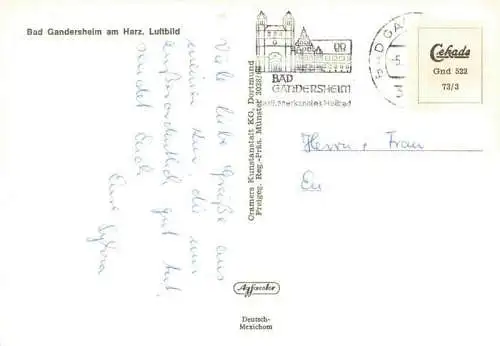 Bad Gandersheim am Harz. Luftbild
Viele liebe Grüße aus
meiner Kur, die mir
außerordentlich gut tut,
sendet Euch
Eure Sylvia
Cramers Kunstanstalt KG, Dortmund
Freigeg. Reg.-Präs. Münster
BAD
GANDERSHEIM
Heilbad
Cekade
Gnd 523
73/3
Herrn + Frau
Agfacolor
Deutsch-
Mexichom